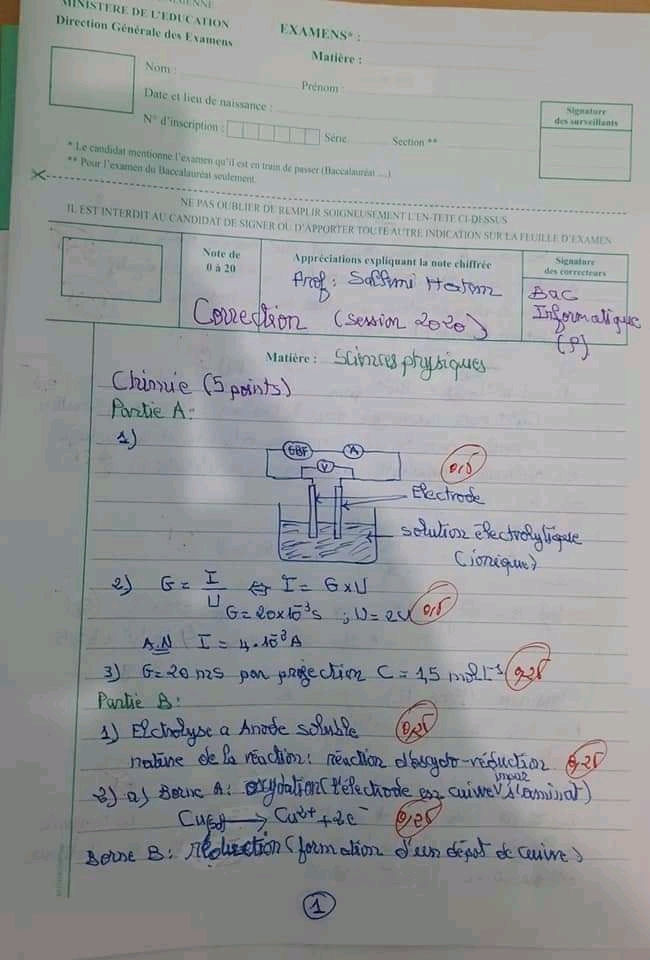 MINISTERE DE L'EDUCATION
Direction Générale des Examens
EXAMENS* :
Matière :
Nom :
Prénom :
Date et lieu de naissance :
N° d'inscription :
Série
Section **
Signature
des surveillants
* Le candidat mentionne l'examen qu'il est en train de passer (Baccalauréat ....)
** Pour l'examen du Baccalauréat seulement.
NE PAS OUBLIER DE REMPLIR SOIGNEUSEMENT L'EN-TETE CI-DESSUS
IL EST INTERDIT AU CANDIDAT DE SIGNER OU D'APPORTER TOUTE AUTRE INDICATION SUR LA FEUILLE D'EXAMEN
Note de
0 à 20
Appréciations expliquant la note chiffrée
Signature
des correcteurs
Prof: Sallemi Hatem
Correction (session 2020)
Bac
Informatique
(P)
Matière : Sciences physiques
Chimie (5 points)
Partie A:
1)
GBF
A
V
0,5
Electrode
solution électrolytique
(ionique)
2) G = I/U ⇔ I = G x U
G = 20x10⁻³s ; U = 2V 0,5
A.N I = 4.10⁻³A
3) G = 20 ms par projection C = 1,5 mol.L⁻¹ 0,25
Partie B:
1) Elctrolyse a Anode soluble 0,25
nature de la réaction: réaction d'oxydo-réduction 0,25
2) a) Borne A: oxydation (l'électrode en cuivre impur s'amincit)
Cu(sd) → Cu²⁺ + 2e⁻ 0,25
Borne B: réduction (formation d'un dépôt de cuivre)
1